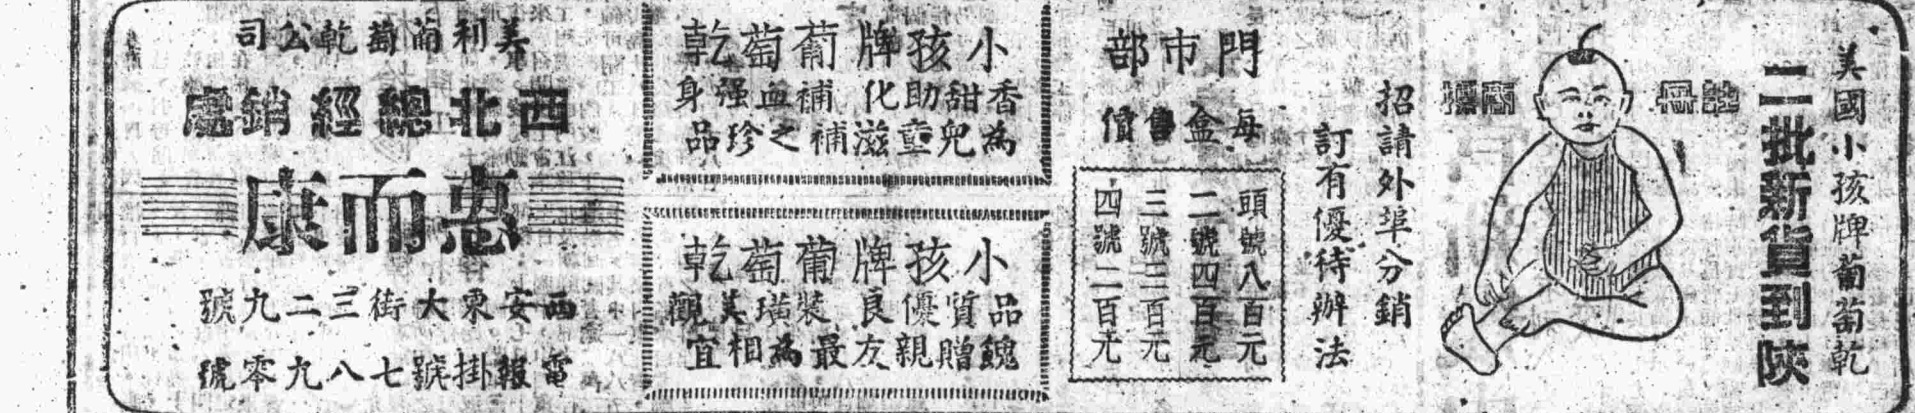 美國小孩牌葡萄乾
二批新貨到陝
註冊
商標
招請外埠分銷
訂有優待辦法
門市部
每盒售價
頭號八百元
二號四百元
三號三百元
四號二百元
小孩牌葡萄乾
香甜助化補血强身
為兒童滋補之珍品
小孩牌葡萄乾
品質優良裝璜美觀
餽贈親友最為相宜
美利葡萄乾公司
西北總經銷處
惠而康
西安東大街三二九號
電報掛號七八九零號